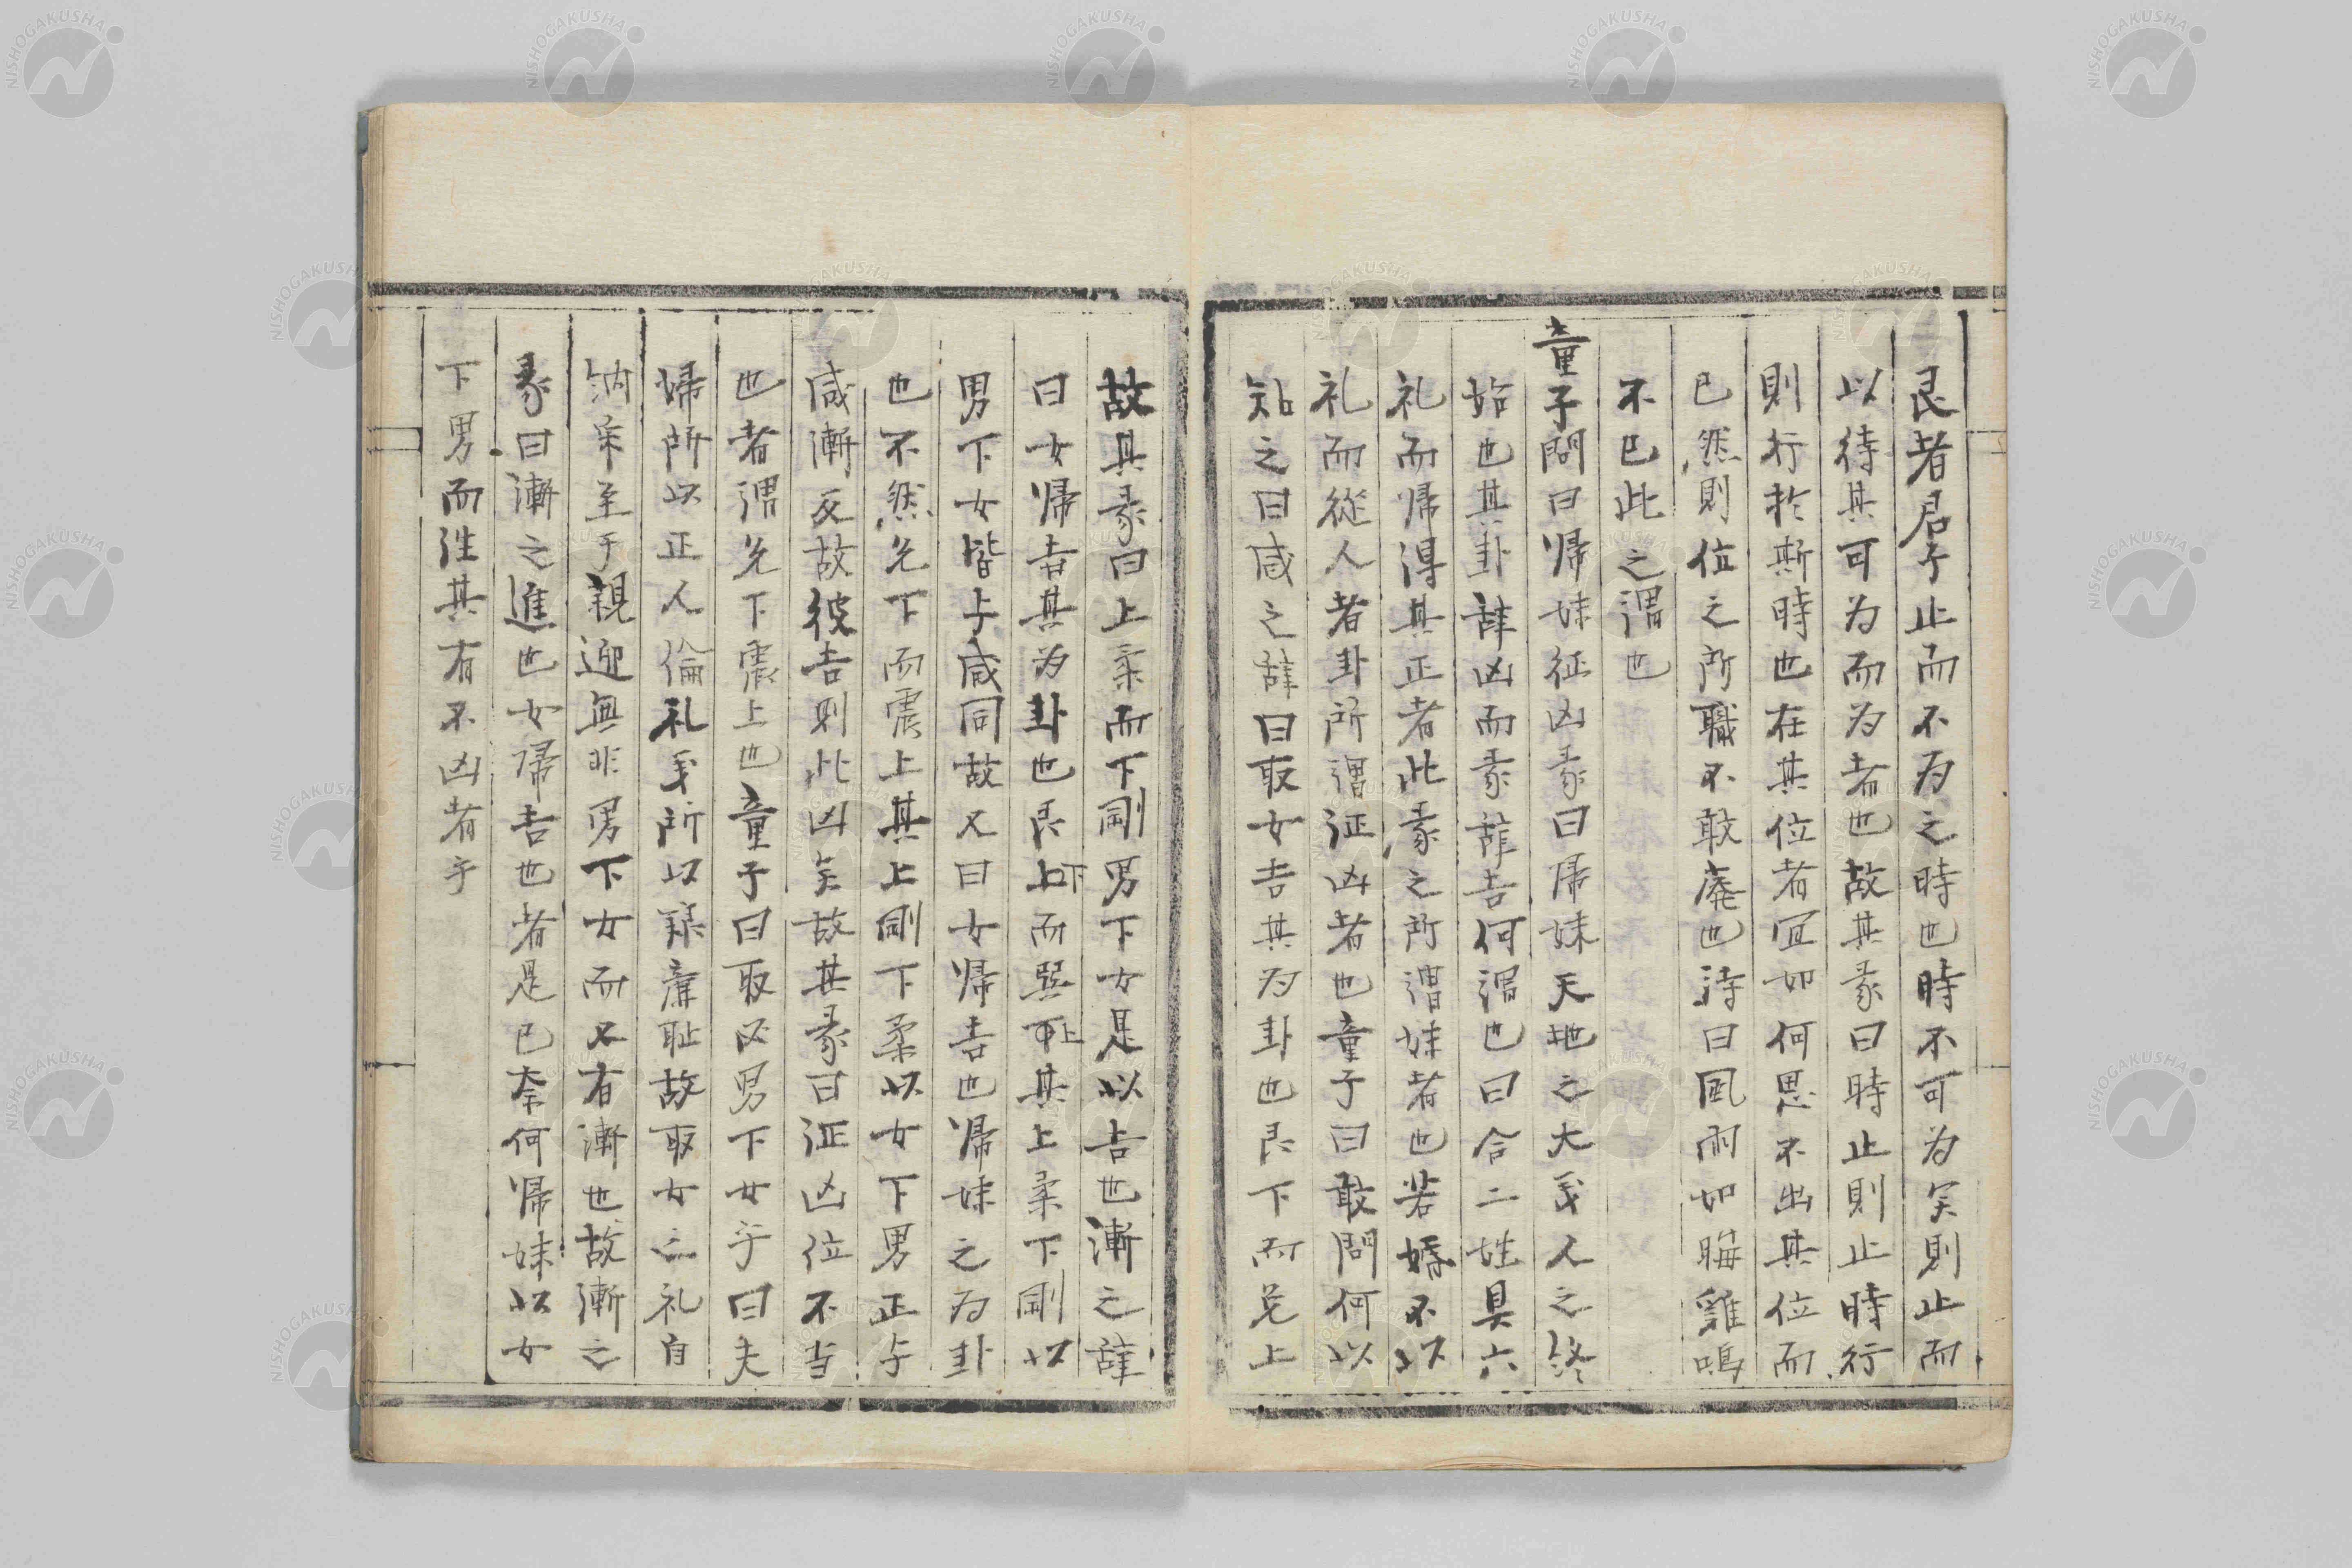 艮者君子止而不为之時也時不可为矣則止而
以待其可为而为者也故其彖曰時止則止時行
則行於斯時也在其位者冝如何思不出其位而
已然則位之所職不敢廃也詩曰風雨如晦雞鳴
不已此之謂也
童子問曰帰妹征凶彖曰帰妹天地之大義人之終
始也其卦辞凶而彖辞吉何謂也曰合二姓具六
礼而帰得其正者此彖之所謂妹者也若婚不以
礼而從人者卦所謂征凶者也童子曰敢問何以
知之曰咸之辞曰取女吉其为卦也艮下而兌上
故其彖曰上柔而下剛男下女是以吉也漸之辞
曰女帰吉其为卦也艮下而巽上其上柔下剛以
男下女皆与咸同故又曰女帰吉也帰妹之为卦
也不然兌下而震上其上剛下柔以女下男正与
咸漸反故彼吉則此凶矣故其彖曰征凶位不当
也者謂兌下震上也童子曰取必男下女乎曰夫
婦所以正人倫礼義所以養廉耻故取女之礼自
納采至于親迎無非男下女而又有漸也故漸之
彖曰漸之進也女帰吉也者是已奈何帰妹以女
下男而往其有不凶者乎
NISHOGAKUSHA